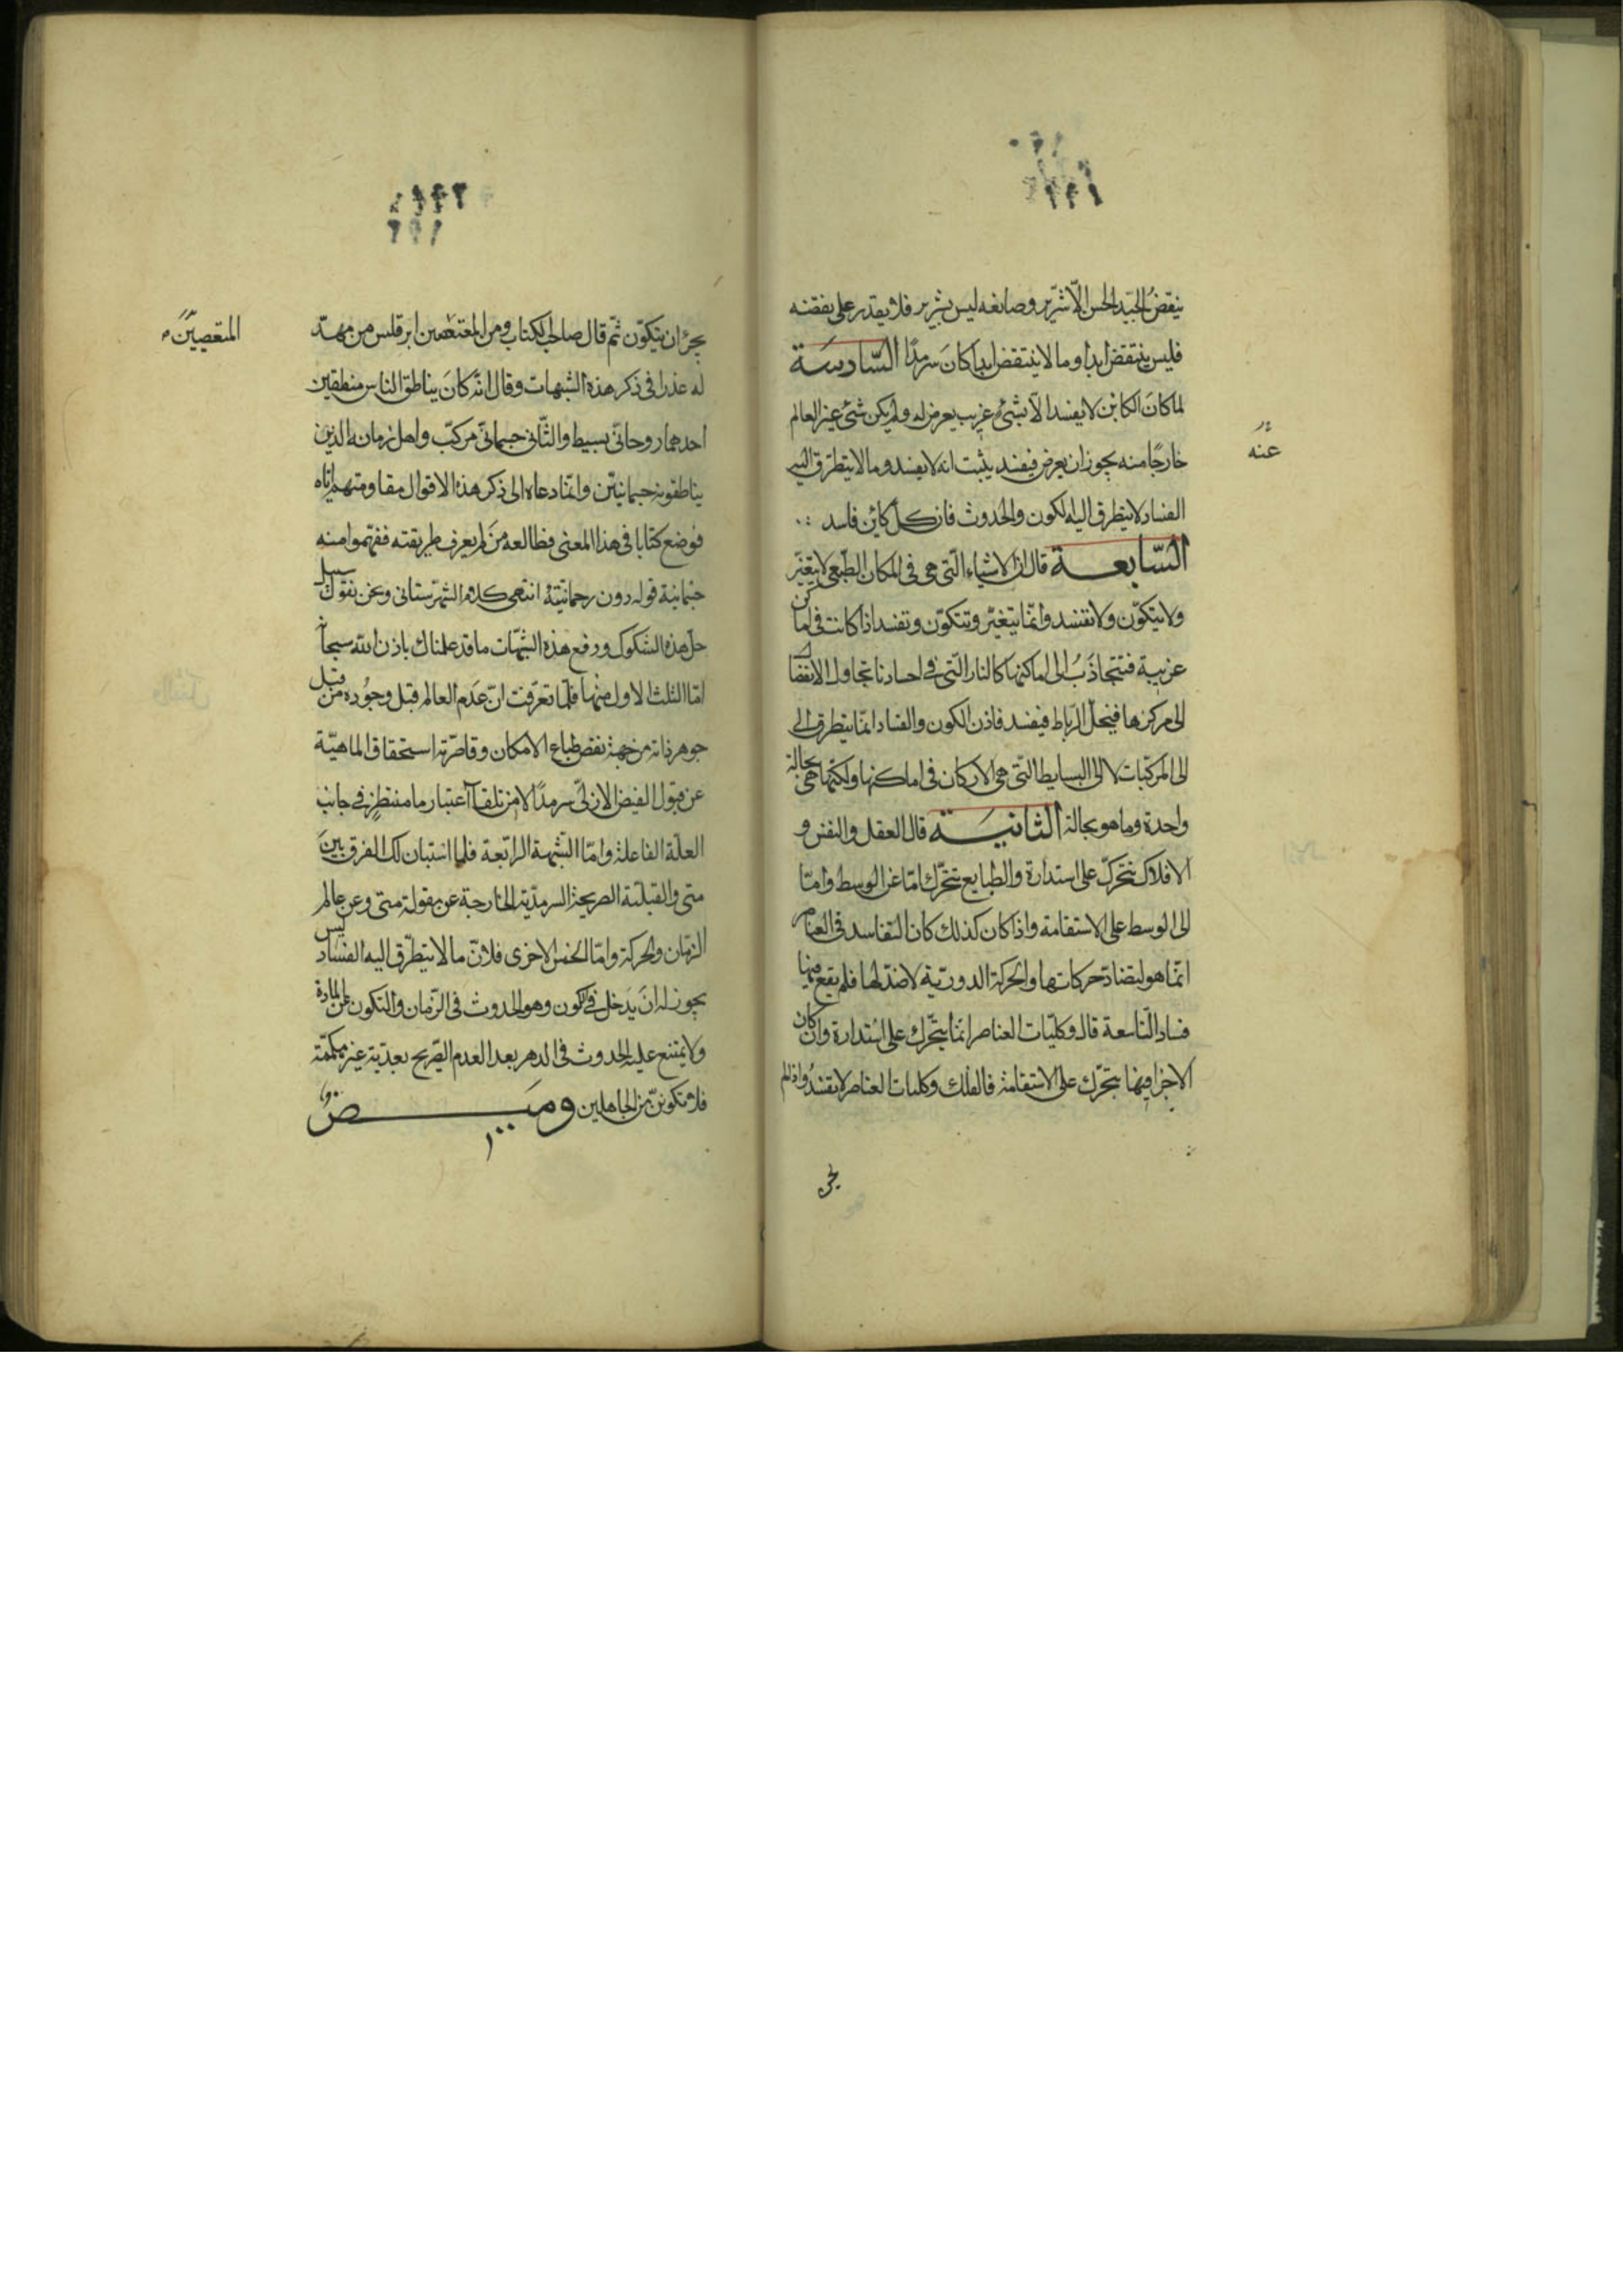 ينقض الجيد الحسن الّا شرّير وصانعه ليس بشرير فلا يقدر على نقضه
فليس ينتقض ابدا وما لا ينتقض ابدا كان سرمدًا السّادسَة
لما كانَ الكاين لا يفسد الّا بشئ غريب يعرض له ولم يكن شئ غير العالم
خارجًا منه يجوز ان يعرض فيفسد يثبت انه لا يفسد وما لا يتطرّق اليه
عنه
الفساد لا يتطرق اليه الكون والحدوث فان كلّ كائن فاسد
السّابعـة قال ان الاشياء الّتى هى فى المكان الطّبعى لا يتغيّر
ولا يتكوّن ولا تفسد وانّما يتغيّر وتتكوّن وتفسد اذا كانت فى اماكن
غريبة فتتجاذَبُ الى اماكنها كالنار الّتى فى اجسادنا تحاول الانفصال
الى مركزها فينحل الرّباط فيفسد فاذن الكون والفساد انّما يتطرق الى
الى المركبات لا الى البسايط التّى هى الاركان فى اماكنها ولكنّها هى بحالة
واحدة وما هو بحالة الثانيـَة قال العقل والنفس و
الافلاك تتحرّك على استدارة والطبايع تتحرّك امّا عن الوسط وامّا
الى الوسط على الاستقامة واذا كان كذلك كان التفاسد فى العناصر
انّما هو لتضادّ حركاتها والحركة الدوريّة لا ضدّ لها فلم يقع فيها
فساد التّاسعة قال وكليّات العناصر انّما يتحّرك على استدارة وان كان
الاجزا فيها يتحرّك على الاستقامة فالفلك وكليات العناصر لا يفسدُ واذا لم
يجز
يجز ان يتكوّن ثمّ قال صاحب الكتاب ومن المتعصبين ابرقلس من مهّد
المتعصبيّن
له عذرا فى ذكر هذه الشبهات وقال انّه كانَ يناطق الناس منطقين
احدهما روحانىّ بسيط والثّانى جسمانىّ مركّب واهل زمانه الّذين
يناطقونه جسمانيّين وانّما دعاه الى ذكر هذه الاقوال مقاومتهم ايّاه
فوضع كتابا فى هذا المعنى فطالعه مَن لم يعرف طريقته ففهموا منه
جسمانية قوله دون روحانيّته انتهى كلام الشهرستانى ونحن نقول سبيل
حلّ هذه الشكوك ورفع هذه الشبّهات ما قد علمناك باذن الله سبحانه
امّا الثلث الاول منها فلما تعرّفت انّ عَدم العالم قبل وجُوده من قبل
جوهر ذاته من جهة نقص طباع الامكان وقاصريّة استحقاق الماهيّة
عن قبول الفيض الازلىّ سرمدًا لا من تلقاء اعتبار ما منتظرٍ فى جانب
العلّة الفاعلة وامّا الشّبهة الرابّعة فلما استبان لك الفرق بينَ
متى والقبليّة الصريحة السرمديّة الخارجة عن مقولة متى وعن عالم
الزمّان والحركة وامّا الخمس الاخرى فلانّ ما لا يتطرّق اليه الفساد ليس
يجوز له ان يدخل فى الكون وهو الحدوث فى الزّمان والتكون عن المادة
ولا يمتنع عليه الحدوث فى الدهر بعد العدم الصّريح بعديّة غير مكمّمة
فلا تكوننّ من الجاهلين ومَيــض